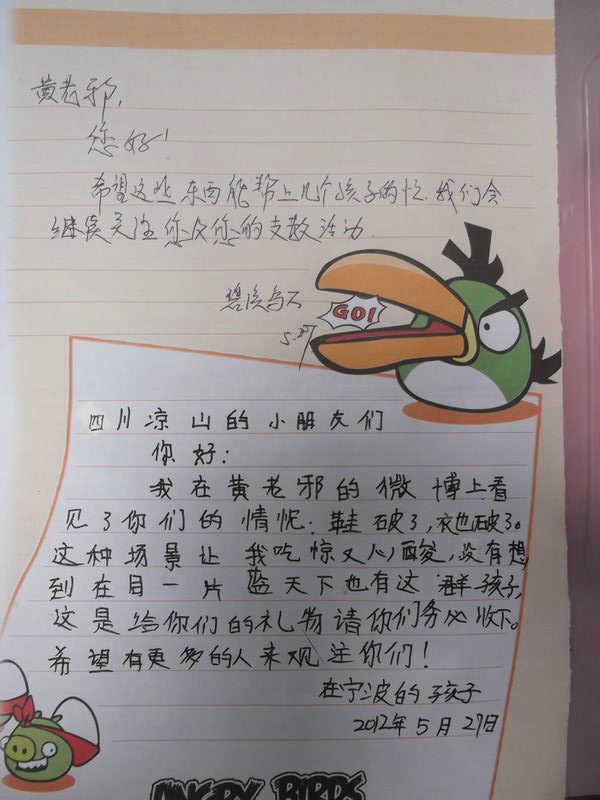 黄老邪,
您好!
希望这些东西能帮上几个孩子的忙.我们会
继续关注您及您的支教活动.
5.27
GO!
四川凉山的小朋友们
你好:
我在黄老邪的微博上看
见了你们的情忱:鞋破了,衣也破了。
这种场景让我吃惊又心酸,没有想
到在目一片蓝天下也有这群孩子,
这是给你们的礼物请你们务必收下。
希望有更多的人来观注你们!
在宁波的孩子
2012年5月27日
ANGRY BIRDS